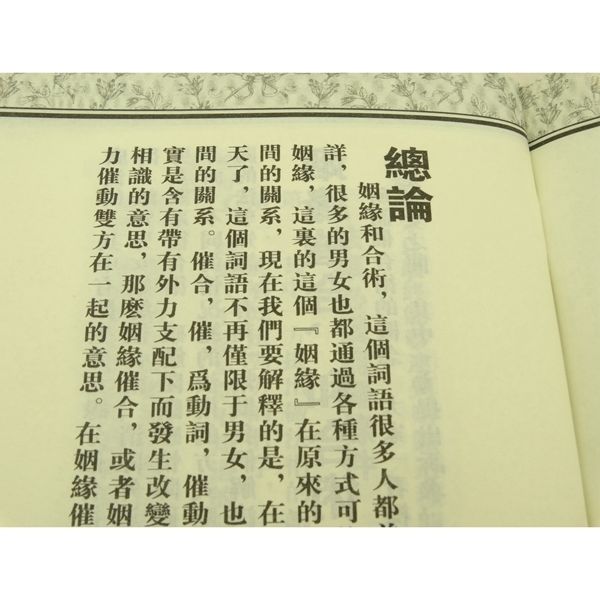 總論
姻緣和合術，這個詞語很多人都
詳，很多的男女也都通過各種方式可
姻緣，這裏的這個『姻緣』在原來的
間的關系，現在我們要解釋的是，在
天了，這個詞語不再僅限于男女，也
間的關系。催合，催，爲動詞，催動
實是含有帶有外力支配下而發生改變
相識的意思，那麽姻緣催合，或者姻
力催動雙方在一起的意思。在姻緣催